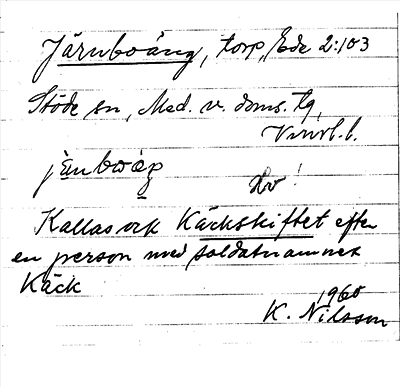 Järnboäng, torp, Ede 2:103
Stöde sn, Med. v. doms. tg,
Vnrl. l.
jä̀nboàŋ
Kallas ock Käckskiftet efter
en person med soldatnamnet
Käck
1960
K. Nilsson